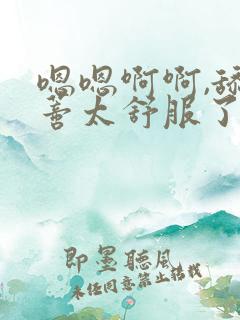 嗯嗯啊啊,舔
善太舒服了
即墨聽風
未经同意禁止转载